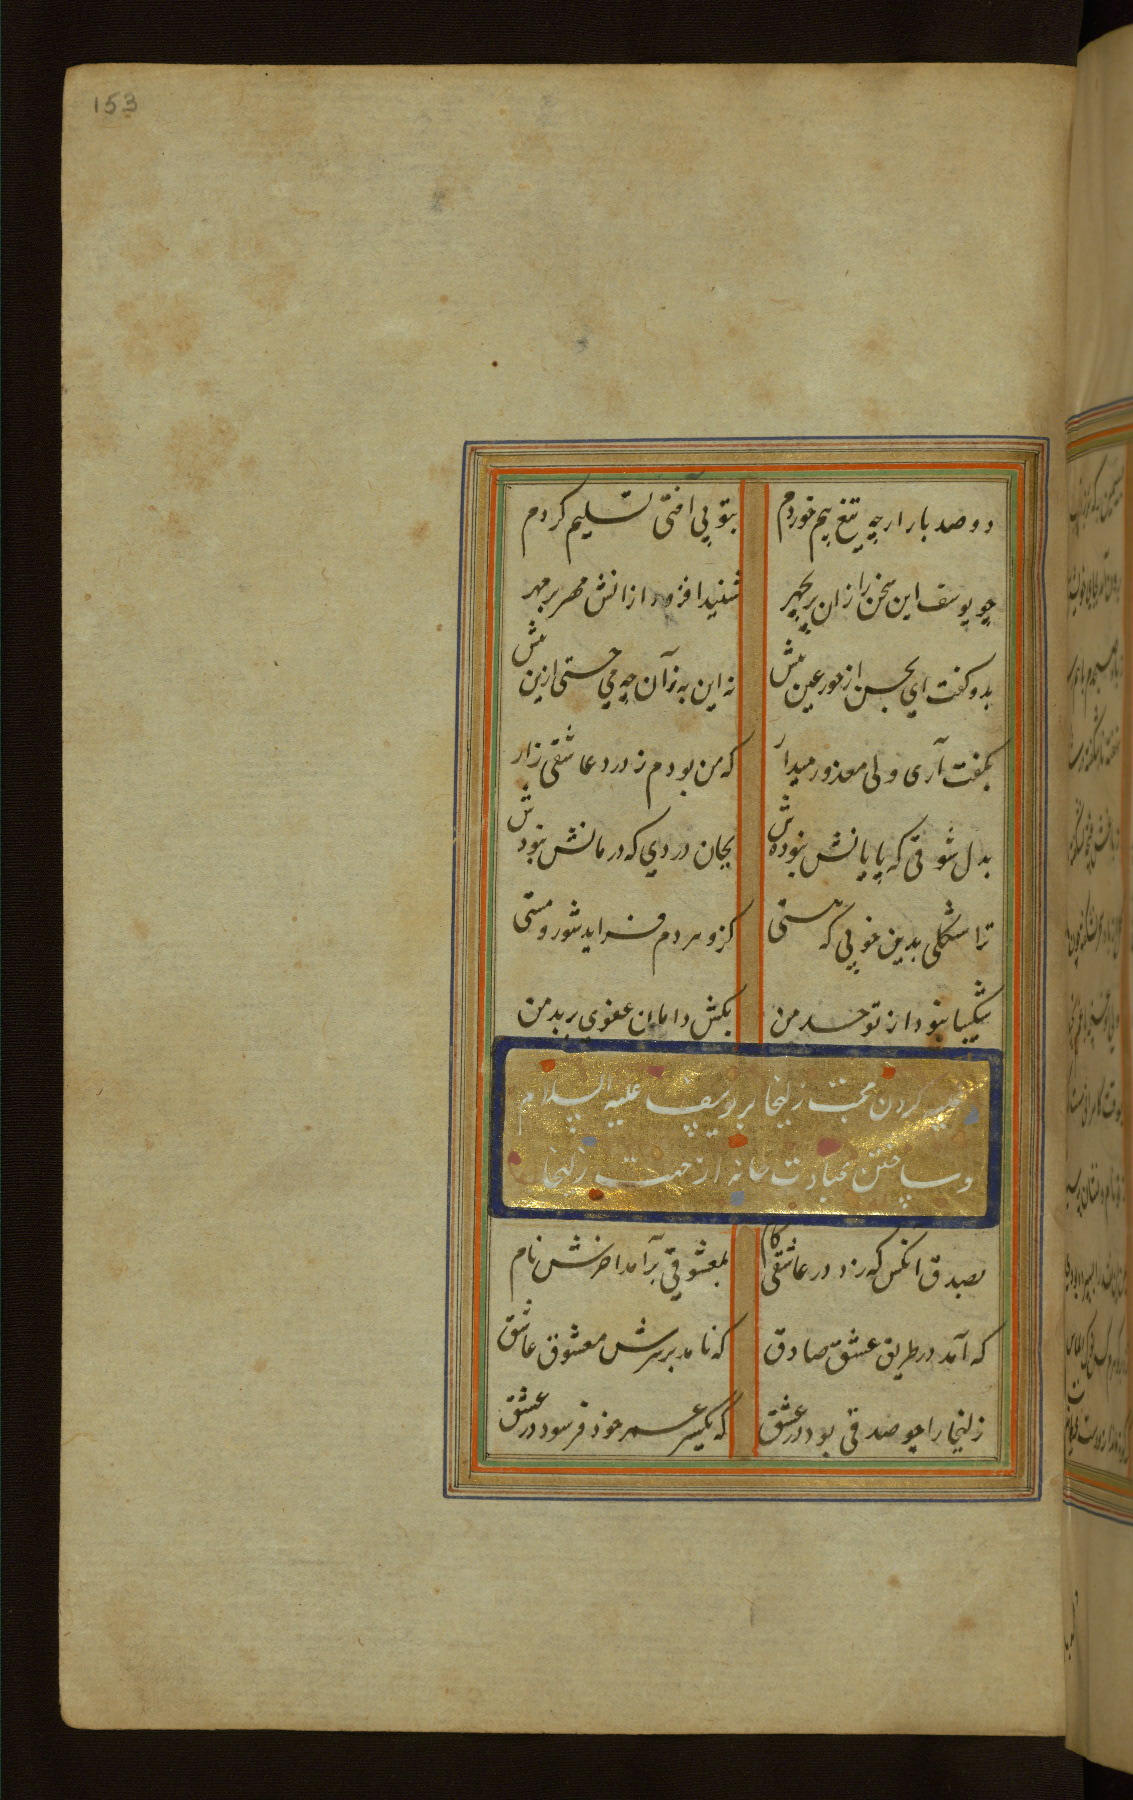 153
دو صد بار ار چه تیغ بیم خوردم بتو بی آفتی تسلیم کردم
چو یوسف این سخن را زان پریچهر شنید افزود ازانش مهر بر مهر
بدو گفت ای بحسن از حور عین بیش نه این به زآن چه می جستی ازین پیش
بگفت آری ولی معذور میدار که من بودم ز درد عاشقی زار
بدل شوقی که پایانش نبودش بجان دردی که درمانش نبودش
ترا شکلی بدین خوبی که هستی کزو هر دم فزاید شور و مستی
شکیبا نبود از تو حد من بکش دامان عفوی بر بد من
غلبه کردن محبت زلیخا بر یوسف علیه السلام
و ساختن عبادت خانه از جهت زلیخا
بصدق انکس که زد در عاشقی کام بمعشوقی برآمد اخرش نام
که آمد در طریق عشق صادق که نامد بر سرش معشوق عاشق
زلیخا را چو صدقی بود در عشق که یکسر عمر خود فرسود در عشق